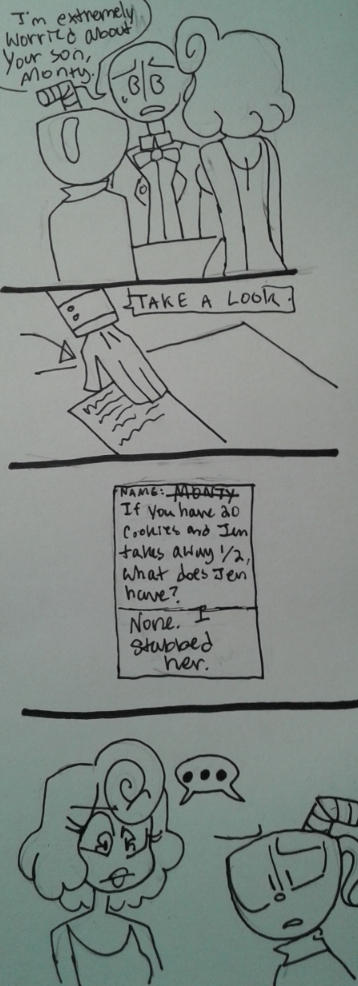 I'm extremely
worried about
your son,
Monty.
TAKE A LOOK.
NAME: MONTY
If you have 20
cookies and Jen
takes away 1/2,
what does Jen
have?
None. I
stabbed
her.
...